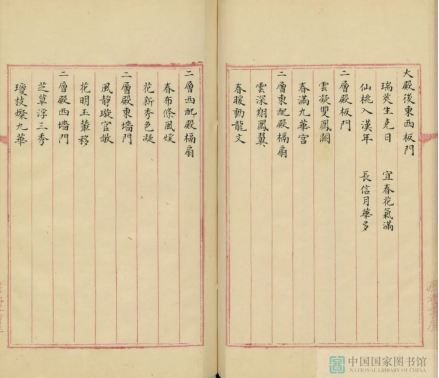 大殿後東西板門
瑞莢生堯日 宜春花氣滿
仙桃入漢年 長信月華多
二層殿板門
雲凝雙鳳闕
春滿九華宮
二層東配殿槅扇
雲深翔鳳翼
春暖動龍文
二層西配殿槅扇
春布條風煖
花新秀色凝
二層殿東墻門
風靜璇宮敞
花明玉輦移
二層殿西墻門
芝草浮三秀
瓊枝燦九華
中国国家图书馆
NATIONAL LIBRARY OF CHINA